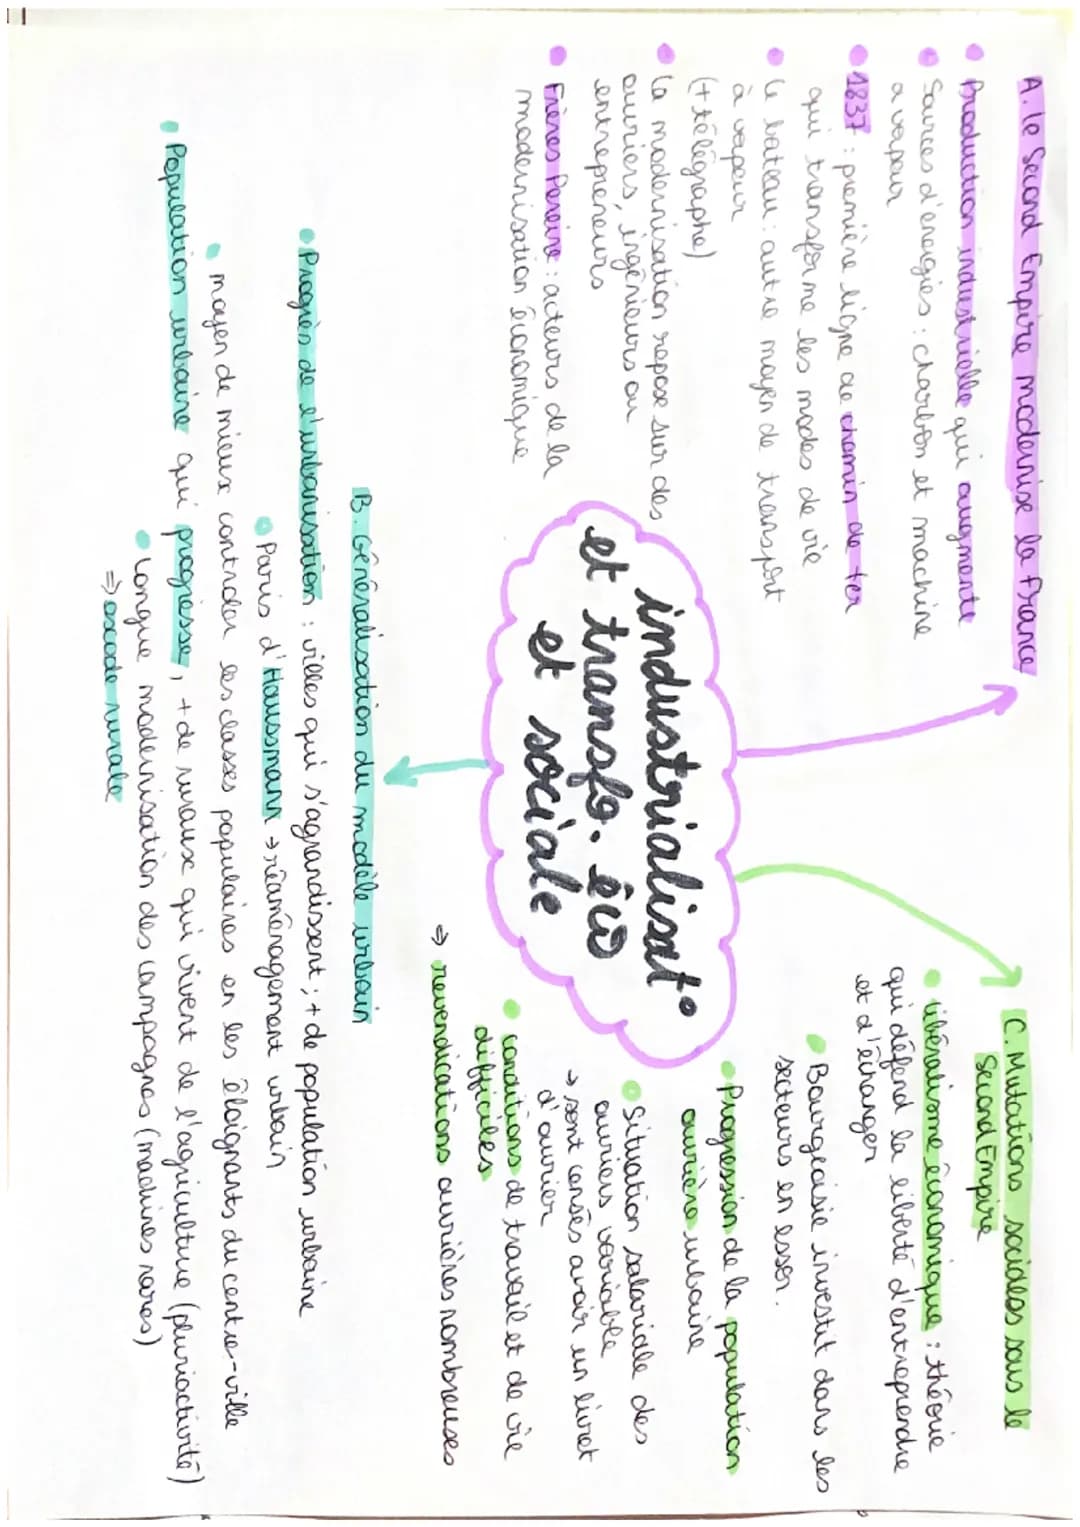 industrialisat°
et transfo. éco
et sociale
A. le Second Empire modernise la France
Production industrielle qui augmente
Sources d'énergies : charbon et machine
a vapeur
1837 : première ligne de chemin de fer
qui transforme les modes de vie
le bateau : autre moyen de transport
à vapeur
(+ télégraphe)
la modernisation repose sur des
ouvriers, ingénieurs ou
entrepreneurs
Frères Pereire : acteurs de la
modernisation économique
B. Généralisation du modèle urbain
Progrès de l'urbanisation : villes qui s'agrandissent ; + de population urbaine
Paris d'Haussmann → réaménagement urbain
moyen de mieux controler les classes populaires en les éloignants du centre-ville
Population urbaine qui progresse, + de ruraux qui vivent de l'agriculture (pluriactivité)
longue modernisation des campagnes (machines rares)
⇒ exode rurale
C. Mutations sociales sous le
Second Empire
libéralisme économique : théorie
qui défend la liberté d'entreprendre
et d'échanger
Bourgeoisie investit dans les
secteurs en essor.
Progression de la population
ouvrière urbaine
Situation salariale des
ouvriers variable
→ sont censés avoir un livret
d'ouvrier
conditions de travail et de vie
difficiles
⇒ revendications ouvrières nombreuses